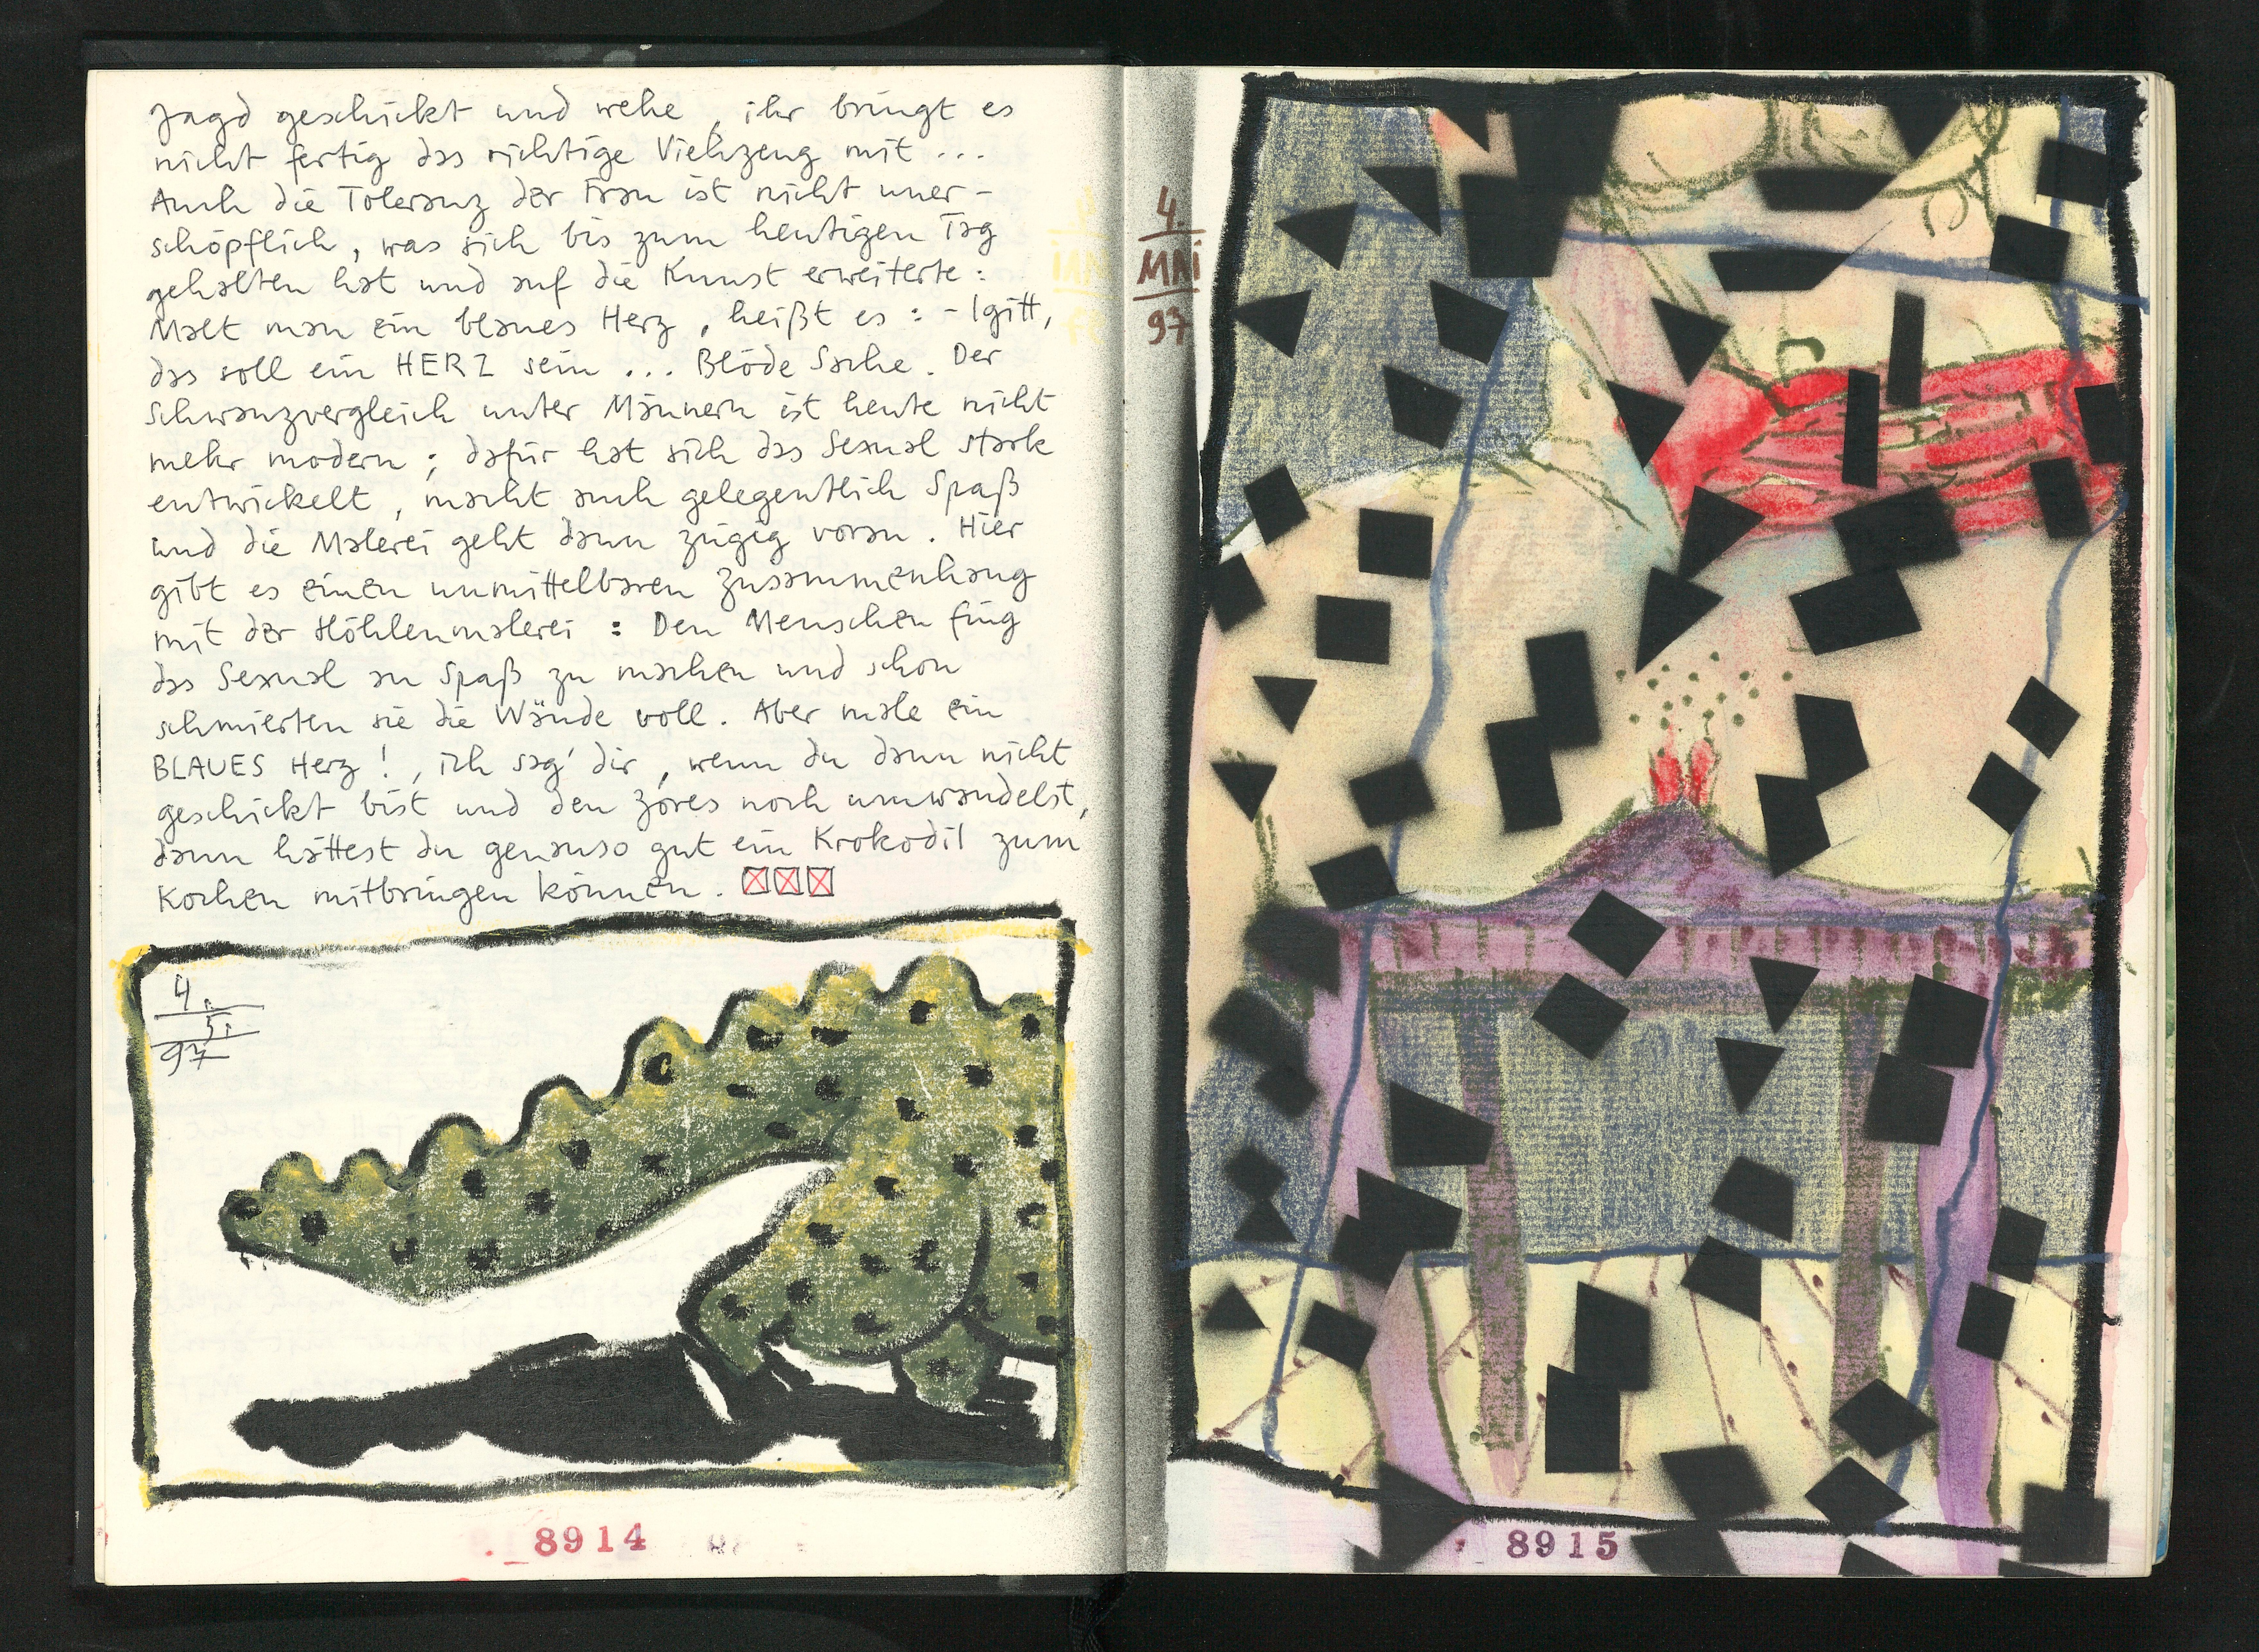 Jagd geschickt und wehe, ihr bringt es
nicht fertig das richtige Viehzeug mit ...
Auch die Toleranz der Frau ist nicht uner-
schöpflich, was sich bis zum heutigen Tag
gehalten hat und auf die Kunst erweiterte:
Malt man ein blaues Herz, heißt es: - Igitt,
das soll ein HERZ sein ... Blöde Sache. Der
Schwanzvergleich unter Männern ist heute nicht
mehr modern; dafür hat sich das Sexual stark
entwickelt, macht auch gelegentlich Spaß
und die Malerei geht dann zügig voran. Hier
gibt es einen unmittelbaren Zusammenhang
mit der Höhlenmalerei: Den Menschen fing
das Sexual an Spaß zu machen und schon
schmierten sie die Wände voll. Aber male ein
BLAUES Herz!, ich sag' dir, wenn du dann nicht
geschickt bist und den Zores noch umwandelst,
dann hättest du genauso gut ein Krokodil zum
Kochen mitbringen können.
4.
5.
97
8914
4.
MAI
97
8915